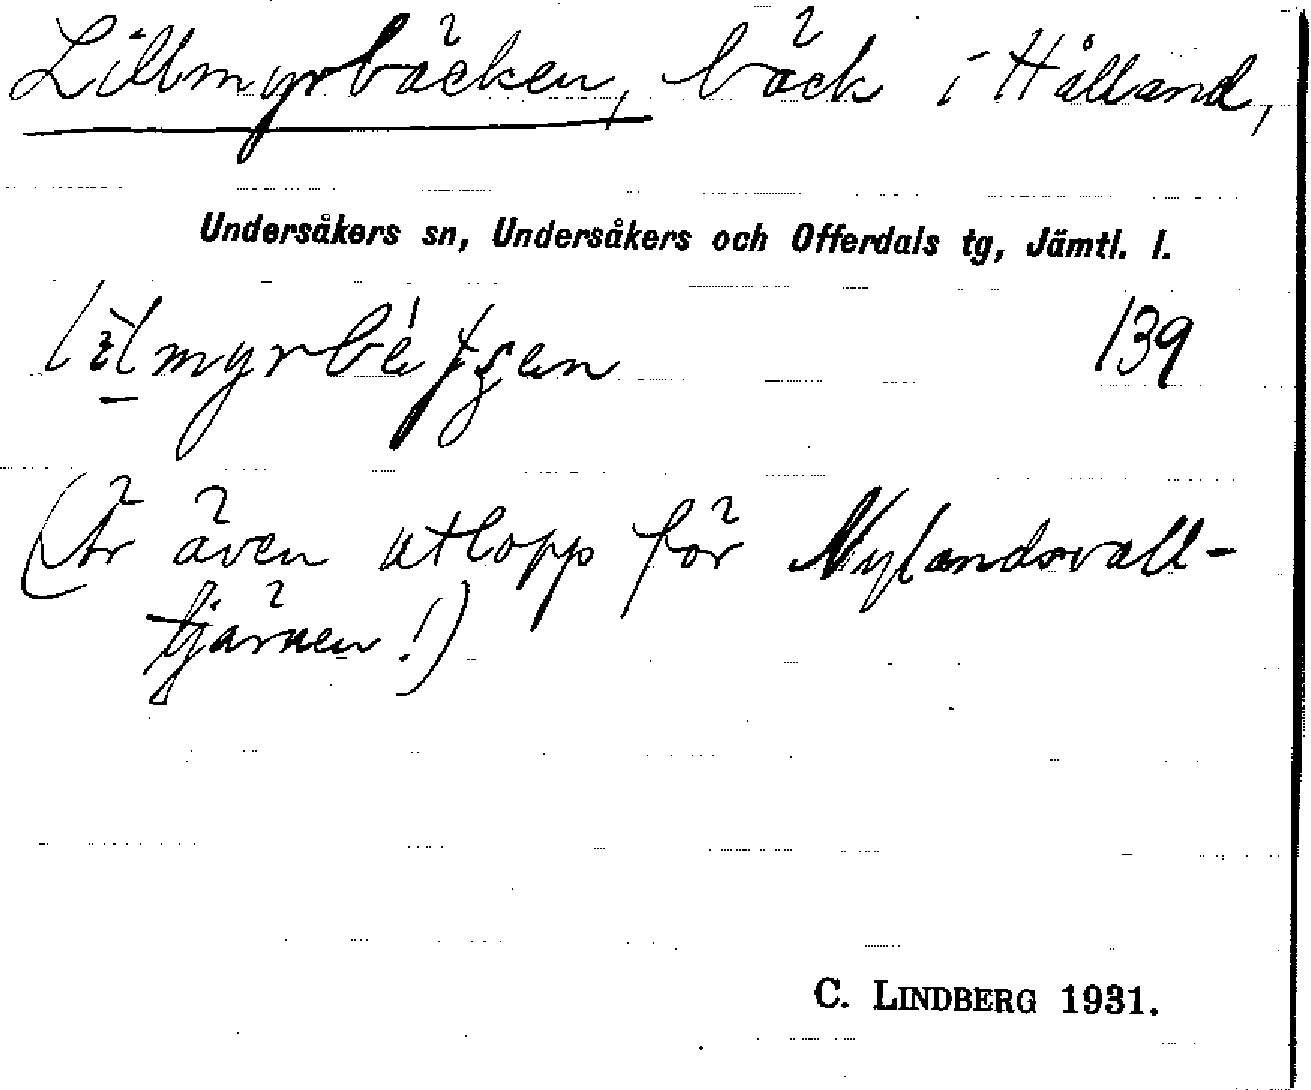 Lillmyrbäcken, bäck i Hålland,
Undersåkers sn, Undersåkers och Offerdals tg, Jämtl. l.
139
(Är även utlopp för Nylandsvall-
tjärnen!)
C. LINDBERG 1931.